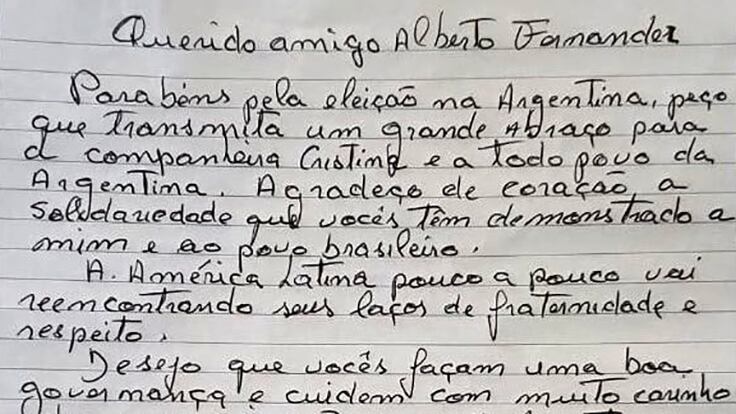 Querido amigo Alberto Fernandez
Parabéns pela eleição na Argentina, peço
que transmita um grande abraço para
a companheira Cristina e a todo povo da
Argentina. Agradeço de coração, a
solidariedade que vocês têm demonstrado a
mim e ao povo brasileiro.
A. América Latina pouco a pouco vai
reencontrando seus laços de fraternidade e
respeito.
Desejo que vocês façam uma boa
governança e cuidem com muito carinho